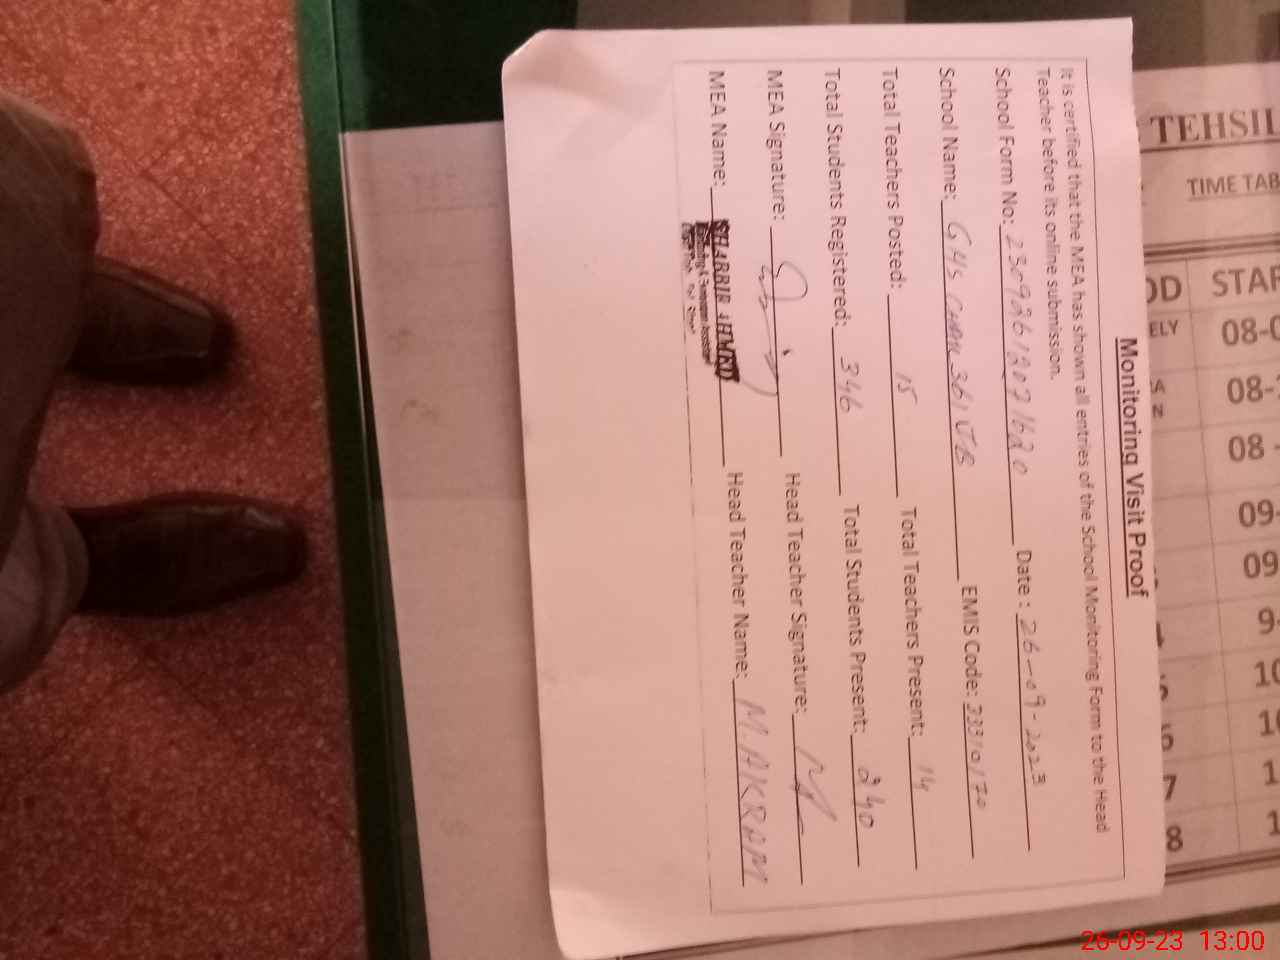 Monitoring Visit Proof
It is certified that the MEA has shown all entries of the School Monitoring Form to the Head
Teacher before its online submission.
School Form No: 23092612071620 Date : 26-09-2023
School Name: GHS CHAK 361 JB EMIS Code: 33310170
Total Teachers Posted: 15 Total Teachers Present: 14
Total Students Registered: 346 Total Students Present: 240
MEA Signature: Head Teacher Signature:
MEA Name: SHABBIR AHMED Head Teacher Name: M. AKRAM
TEHSIL
TIME TAB
OD STAR
ELY 08-0
08-
08 -
09-
09
9-
10
10
7 1
8 1
26-09-23 13:00